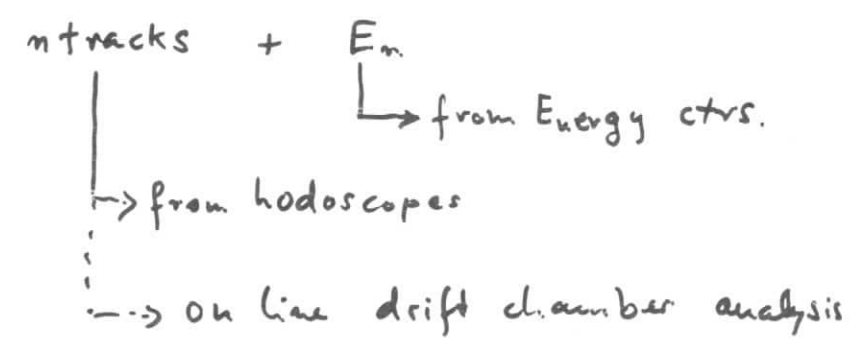 n tracks + Em
from Energy ctrs.
from hodoscopes
on line drift chamber analysis